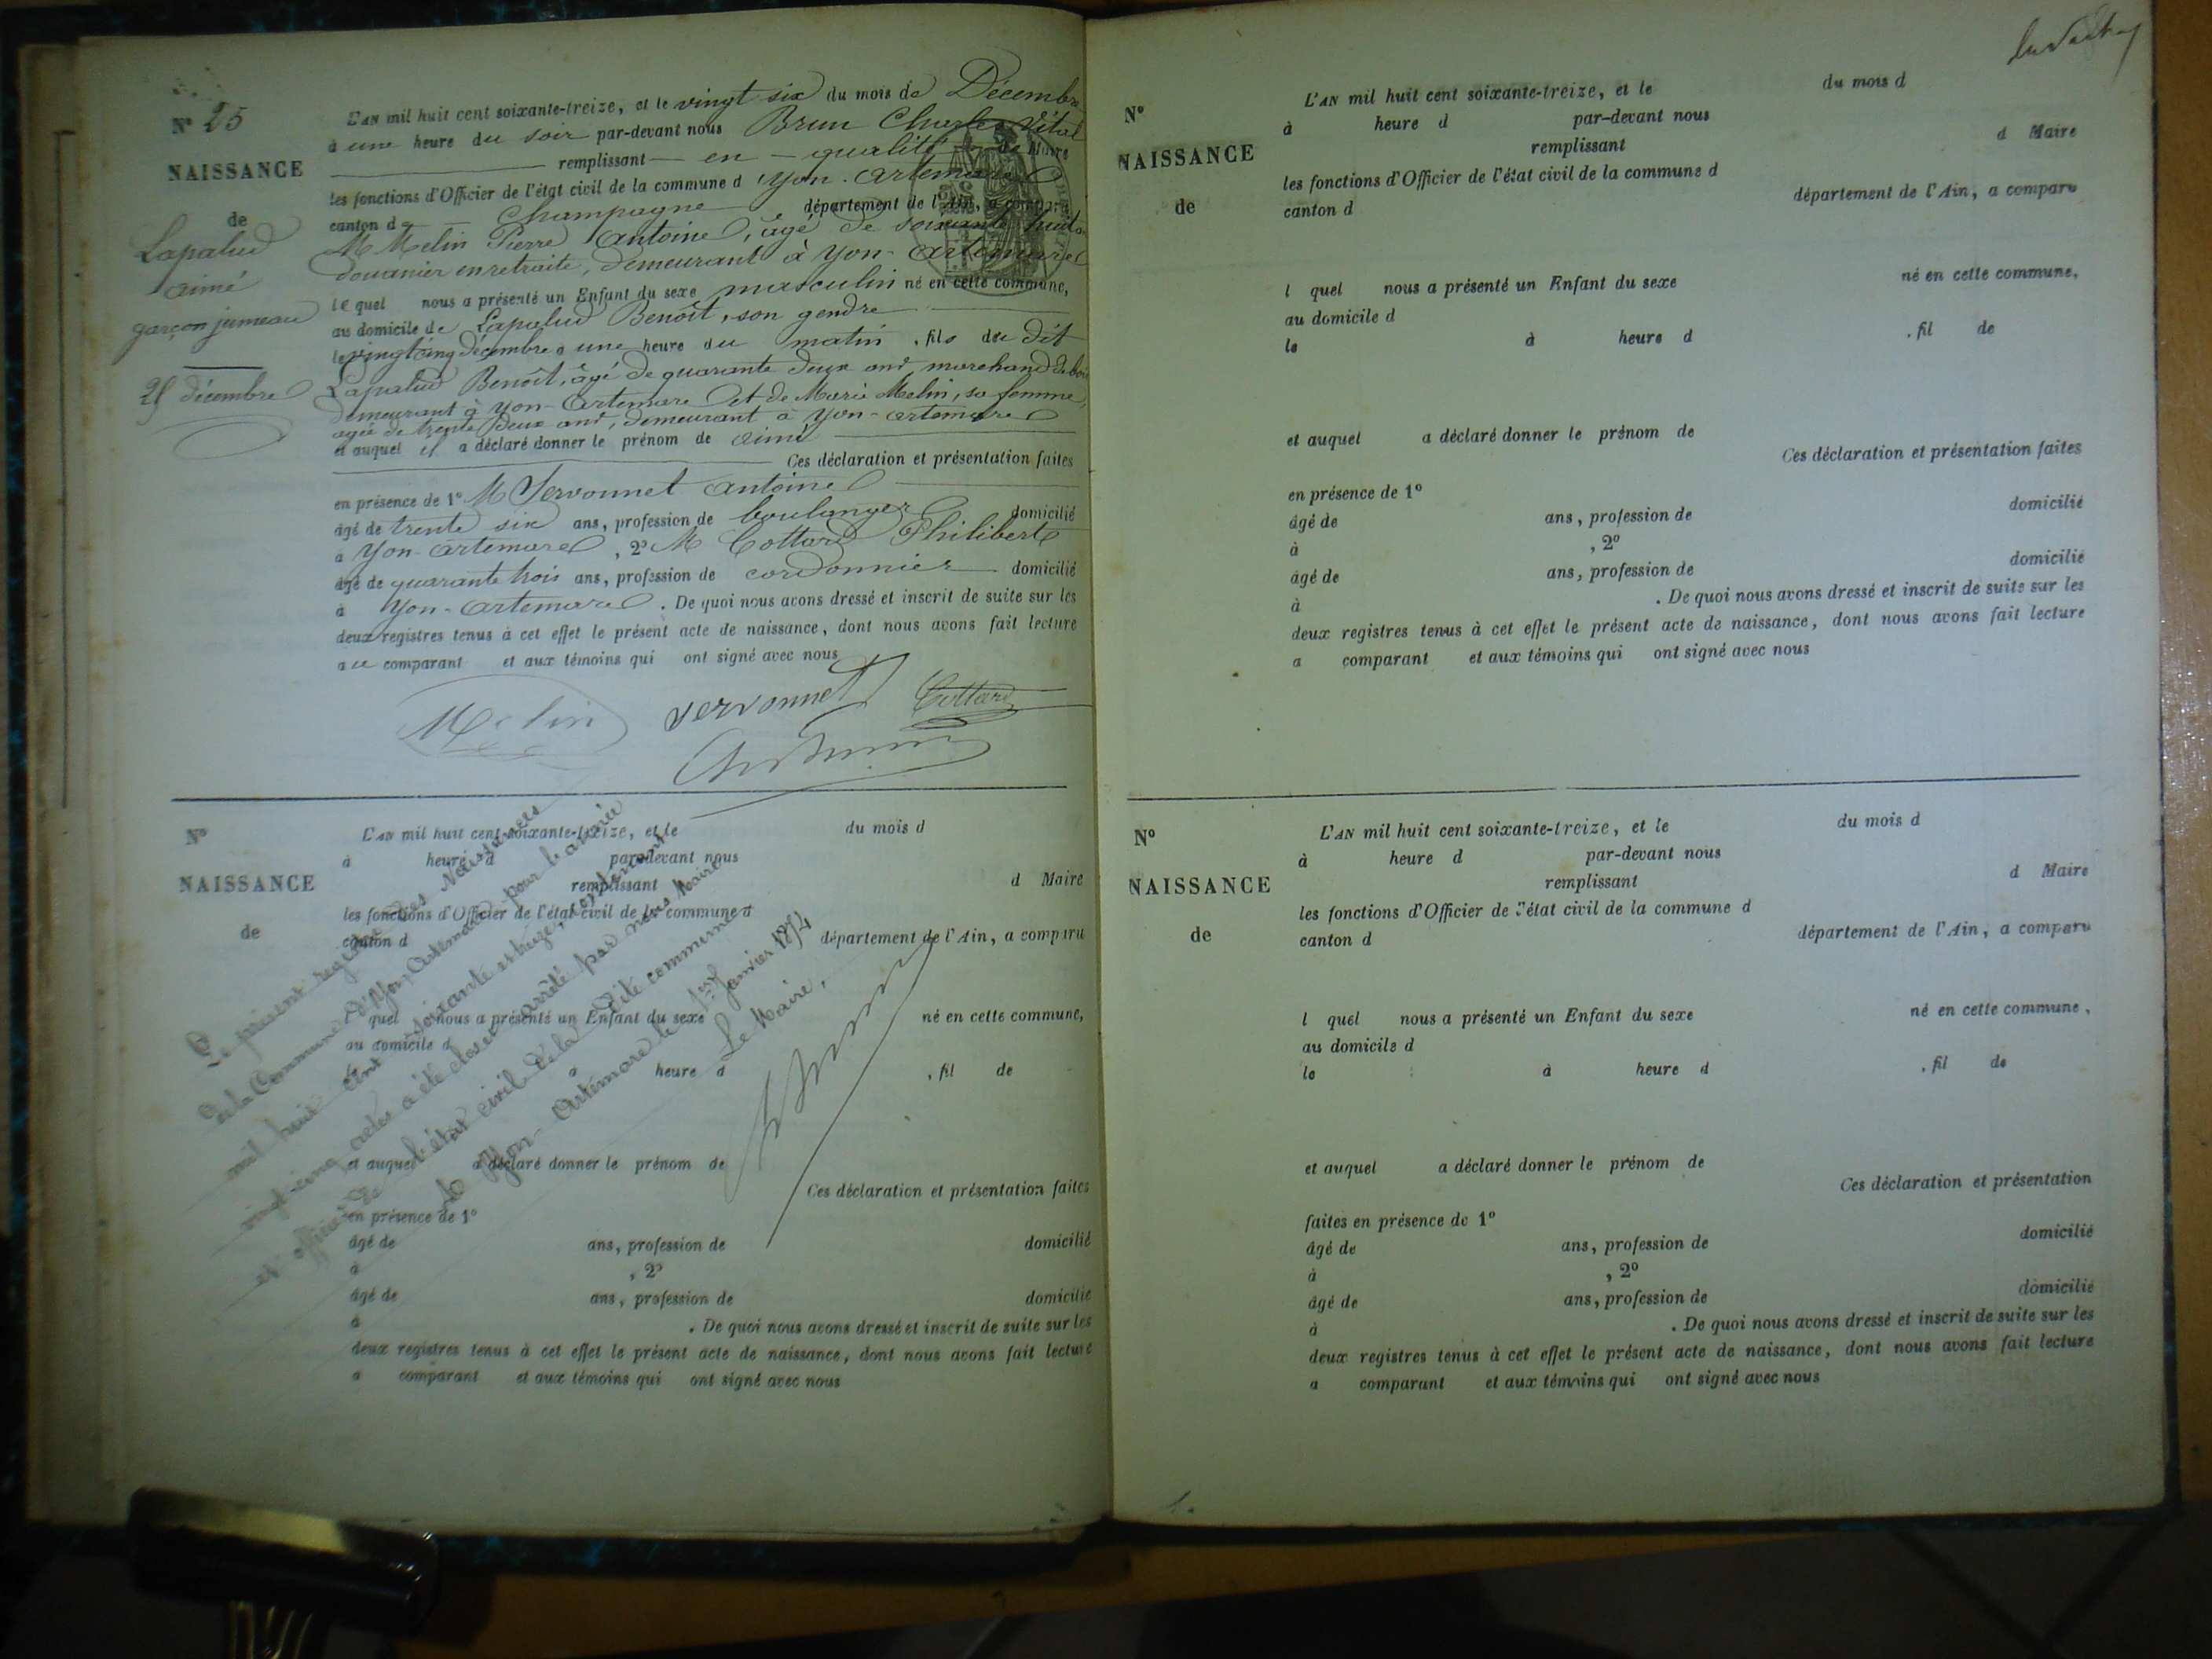 N° 25
NAISSANCE
de
Lapalud
aimé
garçon jumeau
25 décembre
L'AN mil huit cent soixante-treize, et le vingt six du mois de Décembre
à une heure du soir par-devant nous Brun Charles Vital
remplissant en qualité de Maire
les fonctions d'Officier de l'état civil de la commune d'yon-artemare
canton de Champagne département de l'Ain, a comparu
M Melin Pierre antoine, âgé de soixante huit ans
douanier en retraite, demeurant à yon-artemare
lequel nous a présenté un Enfant du sexe masculin né en cette commune,
au domicile de Lapalud Benoît, son gendre
le vingt cinq décembre à une heure du matin, fils du dit
Lapalud Benoît, âgé de quarante deux ans, marchand de bois
demeurant à yon-artemare et de Marie Melin, sa femme,
agée de trente deux ans, demeurant à yon-artemare
et auquel il a déclaré donner le prénom de aimé
Ces déclaration et présentation faites
en présence de 1° M Servonnet antoine
âgé de trente six ans, profession de boulanger domicilié
à yon-artemare, 2° M Cottard Philibert
âgé de quarante trois ans, profession de cordonnier domicilié
à yon-artemare. De quoi nous avons dressé et inscrit de suite sur les
deux registres tenus à cet effet le présent acte de naissance, dont nous avons fait lecture
au comparant et aux témoins qui ont signé avec nous
Melin servonnet Cottard
N°
NAISSANCE
de
L'AN mil huit cent soixante-treize, et le du mois d
à heure d par-devant nous
remplissant d Maire
les fonctions d'Officier de l'état civil de la commune d
canton d département de l'Ain, a comparu
l quel nous a présenté un Enfant du sexe né en cette commune,
au domicile d
le à heure d , fil de
et auquel a déclaré donner le prénom de
Ces déclaration et présentation faites
en présence de 1°
âgé de ans, profession de domicilié
à , 2°
âgé de ans, profession de domicilié
à . De quoi nous avons dressé et inscrit de suite sur les
deux registres tenus à cet effet le présent acte de naissance, dont nous avons fait lecture
a comparant et aux témoins qui ont signé avec nous
Le présent registre des Naissances
de la Commune d'Yon-Artemare pour l'année
mil huit cent soixante et treize, contenant
vingt-cinq actes a été clos et arrêté par nous Maire
et officier de l'état civil de la dite commune
à Yon-Artemare le 1er Janvier 1874
Le Maire,
N°
NAISSANCE
de
L'AN mil huit cent soixante-treize, et le du mois d
à heure d par-devant nous
remplissant d Maire
les fonctions d'Officier de l'état civil de la commune d
canton d département de l'Ain, a comparu
l quel nous a présenté un Enfant du sexe né en cette commune,
au domicile d
le à heure d , fil de
et auquel a déclaré donner le prénom de
Ces déclaration et présentation faites
en présence de 1°
âgé de ans, profession de domicilié
à , 2°
âgé de ans, profession de domicilié
à . De quoi nous avons dressé et inscrit de suite sur les
deux registres tenus à cet effet le présent acte de naissance, dont nous avons fait lecture
a comparant et aux témoins qui ont signé avec nous
N°
NAISSANCE
de
L'AN mil huit cent soixante-treize, et le du mois d
à heure d par-devant nous
remplissant d Maire
les fonctions d'Officier de l'état civil de la commune d
canton d département de l'Ain, a comparu
l quel nous a présenté un Enfant du sexe né en cette commune,
au domicile d
le à heure d , fil de
et auquel a déclaré donner le prénom de
Ces déclaration et présentation
faites en présence de 1°
âgé de ans, profession de domicilié
à , 2°
âgé de ans, profession de domicilié
à . De quoi nous avons dressé et inscrit de suite sur les
deux registres tenus à cet effet le présent acte de naissance, dont nous avons fait lecture
a comparant et aux témoins qui ont signé avec nous